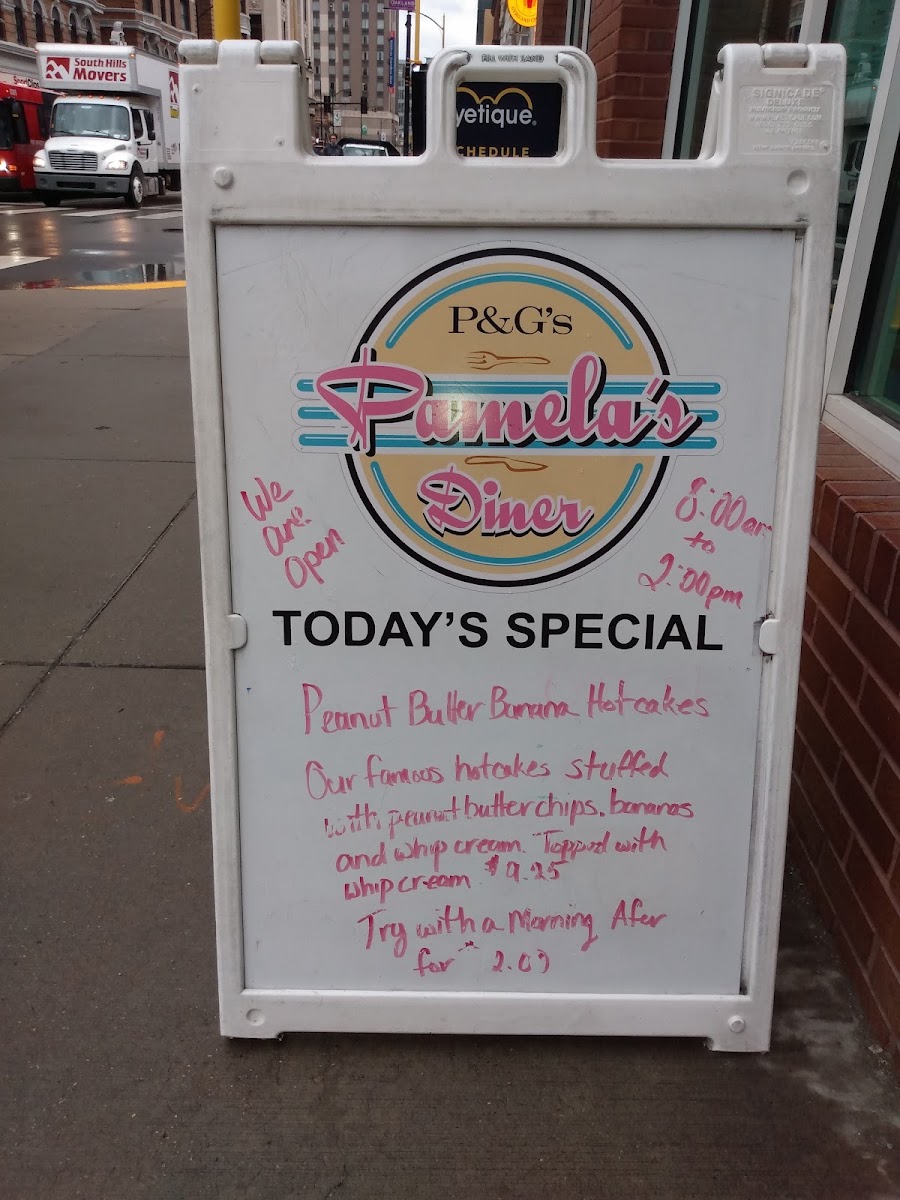 OAKLAND
South Hills
Movers
FILL WITH SAND
yetique.
CHEDULE
SIGNICADE
DELUXE
P&G's
Pamela's
Diner
We
are
Open
8:00am
to
2:00pm
TODAY'S SPECIAL
Peanut Butter Banana Hotcakes
Our famous hotcakes stuffed
with peanut butter chips, bananas
and whip cream. Topped with
whip cream $9.25
Try with a Morning Afer
for 2.0